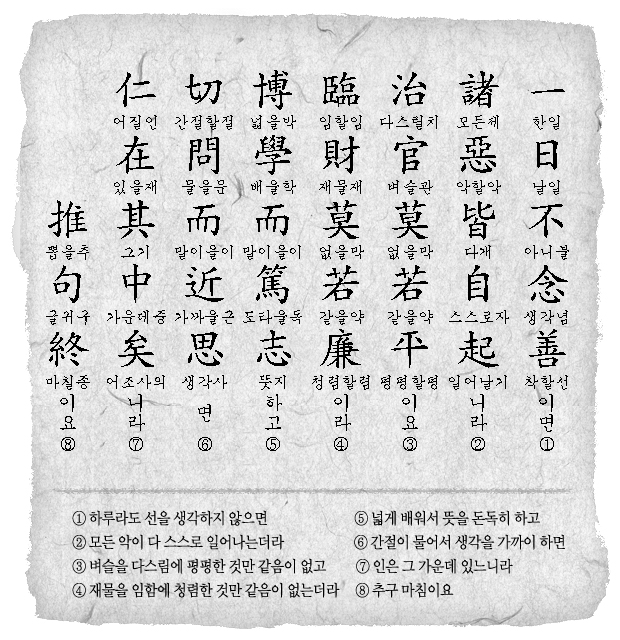 一 한일 日 날일 不 아니불 念 생각념 善 착할선 이면 ①
諸 모든제 惡 악할악 皆 다개 自 스스로자 起 일어날기 니라 ②
治 다스릴치 官 벼슬관 莫 없을막 若 같을약 平 평평할평 이요 ③
臨 임할임 財 재물재 莫 없을막 若 같을약 廉 청렴할렴 이라 ④
博 넓을박 學 배울학 而 말이을이 篤 도타울독 志 뜻지 하고 ⑤
切 간절할절 問 물을문 而 말이을이 近 가까울근 思 생각사 면 ⑥
仁 어질인 在 있을재 其 그기 中 가운데중 矣 어조사의 니라 ⑦
推 뽑을추 句 글귀구 終 마칠종 이요 ⑧
① 하루라도 선을 생각하지 않으면
② 모든 악이 다 스스로 일어나는더라
③ 벼슬을 다스림에 평평한 것만 같음이 없고
④ 재물을 임함에 청렴한 것만 같음이 없는더라
⑤ 넓게 배워서 뜻을 돈독히 하고
⑥ 간절이 물어서 생각을 가까이 하면
⑦ 인은 그 가운데 있느니라
⑧ 추구 마침이요